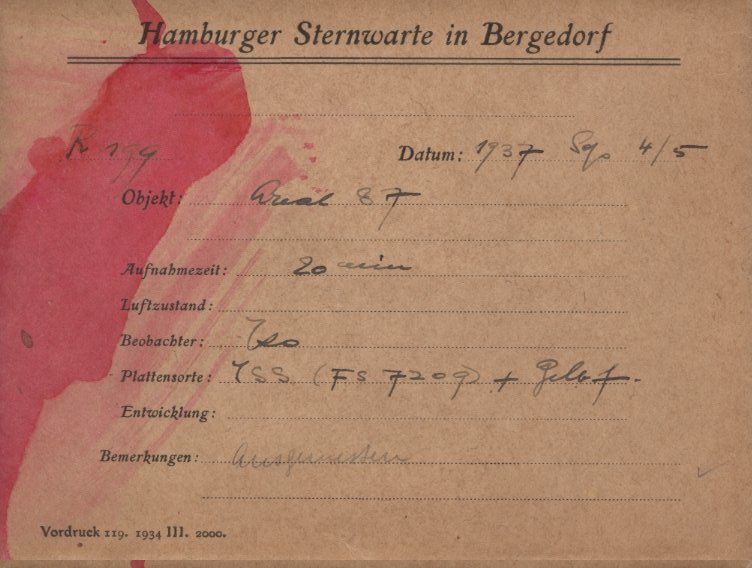 Hamburger Sternwarte in Bergedorf
R 199 Datum: 1937 Sep 4/5
Objekt: Areal 87
Aufnahmezeit: 20 min
Luftzustand:
Beobachter:
Plattensorte: ISS (FS 7209) + Gelbf.
Entwicklung:
Bemerkungen: Ausgemessen
Vordruck 119. 1934 III. 2000.